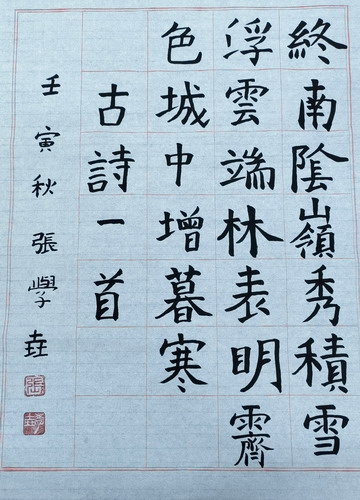 終南陰嶺秀積雪
浮雲端林表明霽
色城中增暮寒
古詩一首
壬寅秋張學垚